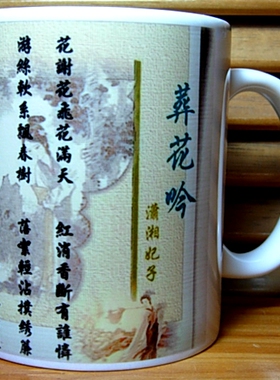 葬花吟
瀟湘妃子
花謝花飛花滿天 紅消香斷有誰憐
游絲軟系飄春樹 落絮輕沾撲綉簾